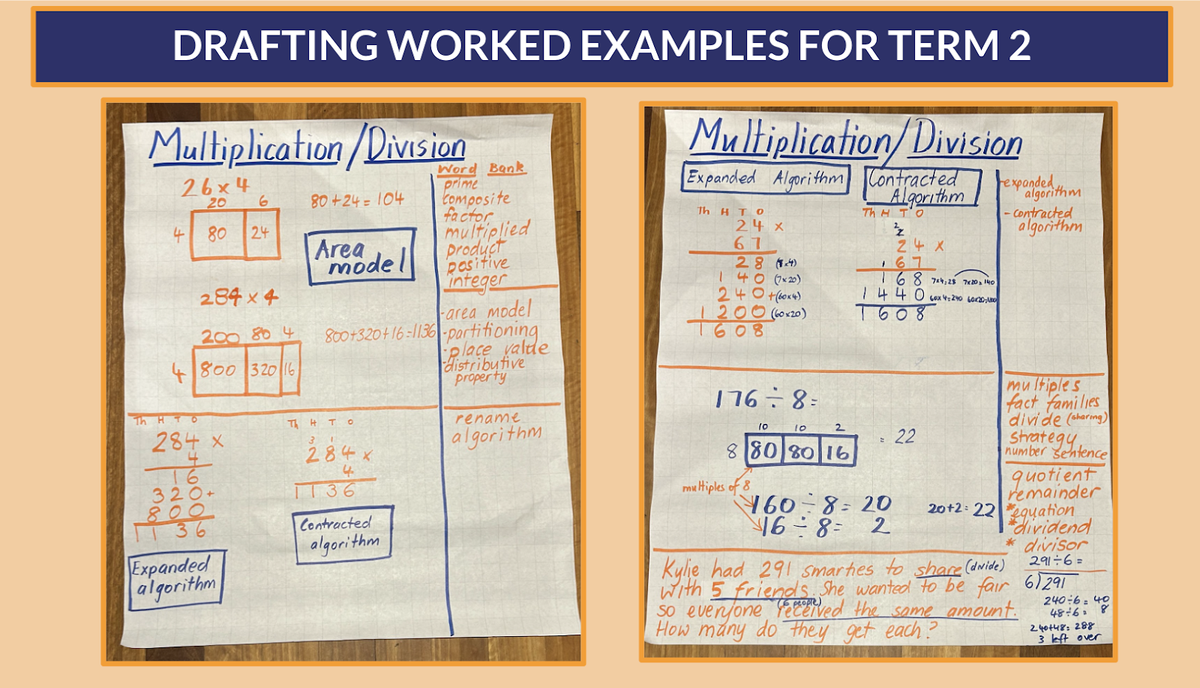 DRAFTING WORKED EXAMPLES FOR TERM 2
Multiplication/Division
26 x 4
20 6
4 80 24
80+24=104
Area
model
284 x 4
200 80 4
4 800 320 16
800+320+16=1136
Th H T O
284 x
4
16
320+
800
1136
Expanded
algorithm
Th H T O
3 1
284 x
4
1136
Contracted
algorithm
Word Bank
prime
composite
factor
multiplied
product
positive
integer
-area model
-partitioning
-place value
-distributive
property
rename
algorithm
Multiplication/Division
Expanded Algorithm
Th H T O
24 x
67
28
140 (7x20)
240+(60x4)
1200 (60x20)
1608
Contracted
Algorithm
Th H T O
24 x
67
168 7x4=28 7x20=140
1440 60x4=240
1608
-expanded
algorithm
- contracted
algorithm
176÷8=
10 10 2
8 80 80 16 = 22
multiples of 8
160÷8=20
16÷8= 2
20+2=22
multiples
fact families
divide (sharing)
strategy
number sentence
quotient
remainder
*equation
*dividend
* divisor
Kylie had 291 smarties to share (divide)
with 5 friends. She wanted to be fair
(6 people)
so everyone received the same amount.
How many do they get each?
291÷6=
6)291
240÷6= 40
48÷6= 8
240+48=288
3 left over